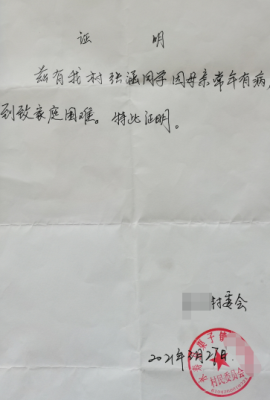 证 明
兹有我村张涵同学因母亲常年有病,
到致家庭困难。特此证明。
村委会
2021年8月27日
村民委员会